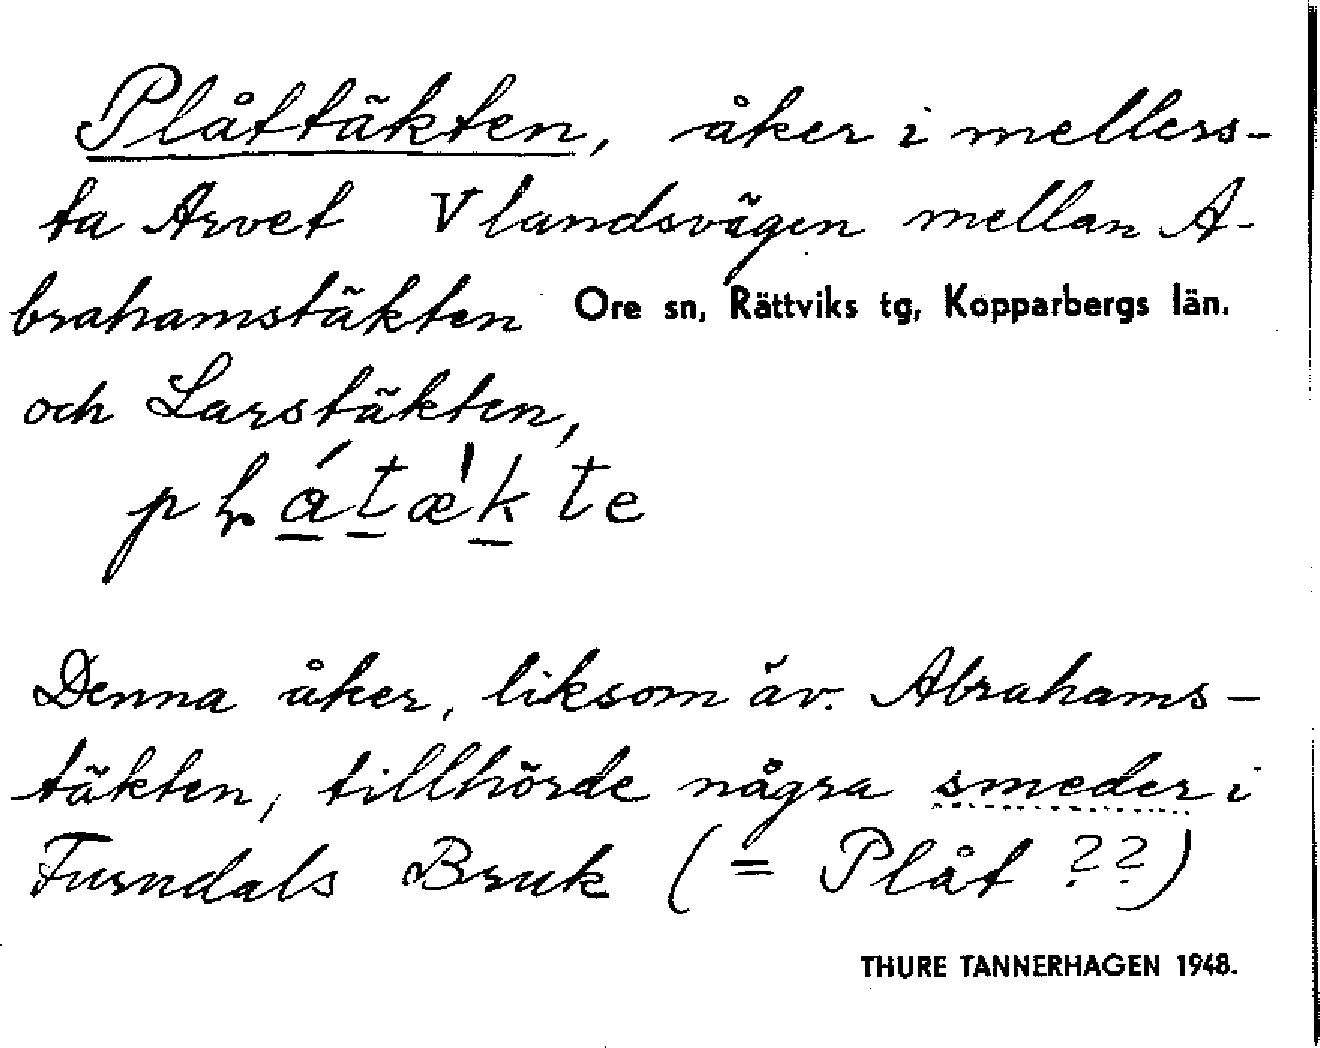 Plåttäkten, åker i mellers-
ta Arvet V landsvägen mellan A-
brahamstäkten Ore sn, Rättviks tg, Kopparbergs län.
och Larstäkten,
Denna åker, liksom äv. Abrahams-
täkten, tillhörde några smeder i
Furndals Bruk (= Plåt ??)
THURE TANNERHAGEN 1948.